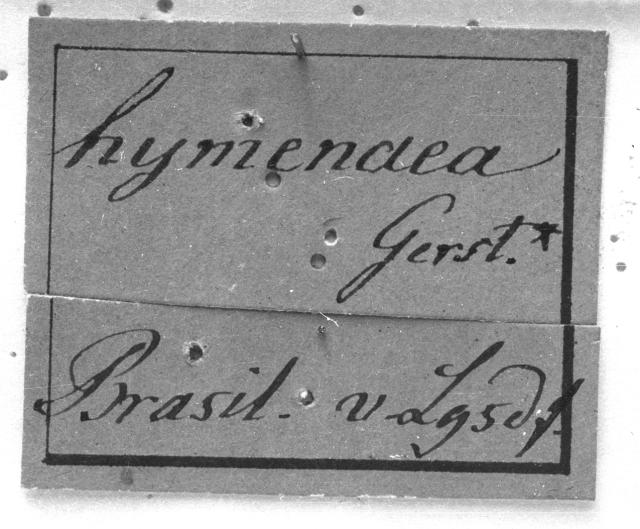 hymenaea
Gerst.*
Brasil. v. Lgsdf.